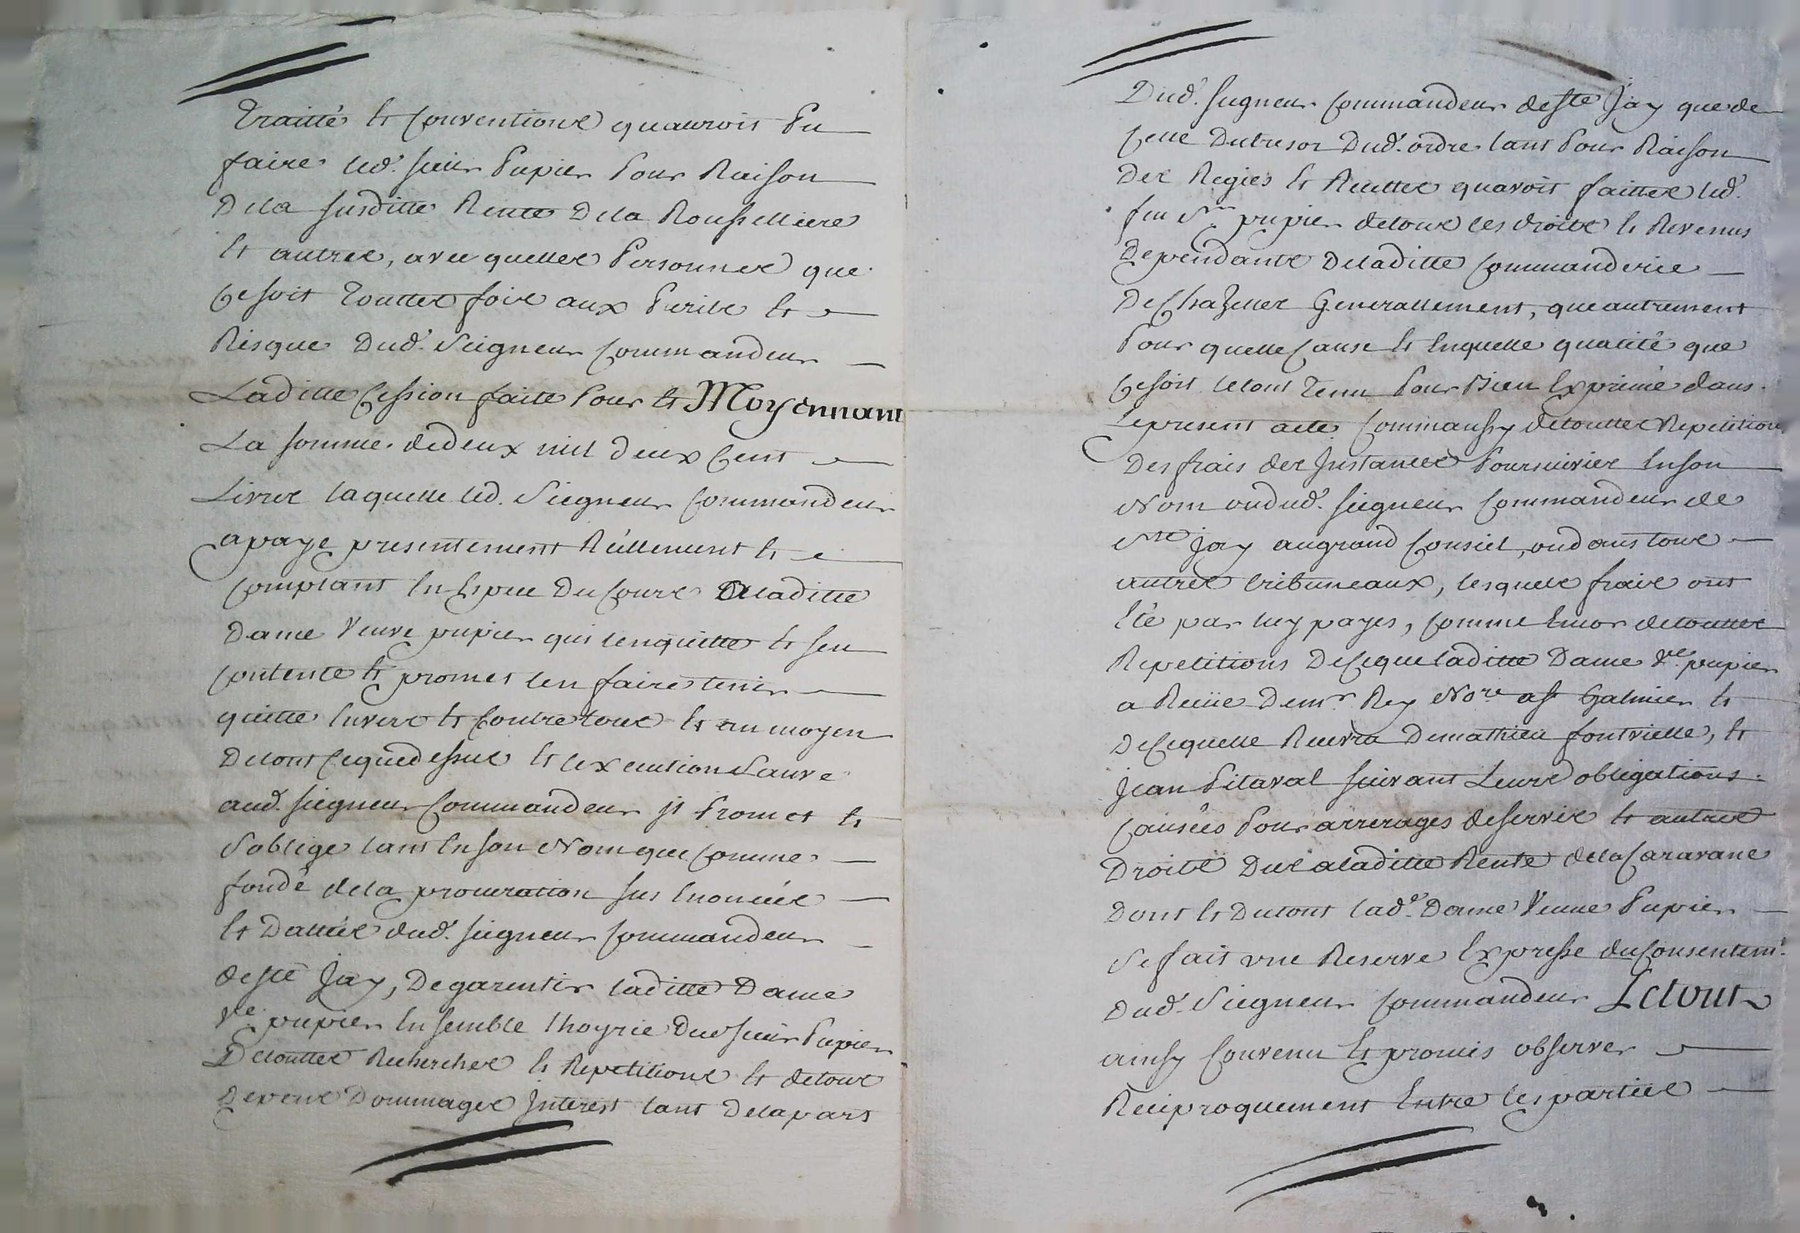 Traitté et Conventions quauroit Pu
faire led. sieur Pupier Pour Raison
Dela susditte Rente Dela Roussilliere
et autres, avec quelles Personnes que
Cesoit Touttes fois aux Perils et
Risque Dud. Seigneur Commandeur
Laditte Cession faite Pour et Moyennant
La somme dedeux mil Deux Cent
Livres laquelle led. Siegneur Commandeur
apaye presentement Réellement et a
Comptant En Espece Du Cours aladitte
Dame Veuve pupier qui lenquitte et sen
Contente et promet len faire tenir
quitte Envers et Contre tous et au moyen
Detout Cequedessus et lexecution Sauve
aud. siegneur Commandeur jl Promet et
Soblige tant En son Nom que Comme
fondé dela procuration sus Enoncée
et Dattée dud. siegneur Commandeur
deste Jay, Degarentir laditte Dame
Ve. pupier Ensemble lhoyrie Dud sieur Pupier
Detouttes Recherches et Repetitions et detous
Depens Dommages Interest tant Delapart
Dud. siegneur Commandeur deste Jay que de
Celle Dutresor Dud. ordre tant Pour Raison
Des Regies et Recettes quavoit faittes led.
feu Sr. pupier detous les droits et Revenus
Dependants Deladitte Commanderie
DeChazelles Generallement, queautrement
Pour quelle Cause et Enquelle qualité que
Cesoit letout Tenu Pour Bien Exprimé dans
Lepresent acte Commaussy detouttes Repetitions
Des frais des Instances Poursuivies Enson
Nom oudud. siegneur Commandeur de
Ste Jay augrand Conseil, oudans tous
autres tribuneaux, lesquels frais ont
Eté par luy payes, Comme Encor detouttes
Repetitions DeCequeladitte Dame Ve. pupier
a Reçue Demr. Rey Nore. a St Galmier et
DeCequelle Recevra Demathieu fontvielle, et
Jean Pitaval suivant Leurs obligations
Causées Pour arrerages deservis et autres
Droits Dus aladitte Rente dela Caravane
Dont et Dutout lade. Dame Veuve Pupier
Se fait une Reserve Expresse du Consentemt.
Dud. Siegneur Commandeur Letout
ainsy Convenu et promis observer
Reciproquement Entre les parties